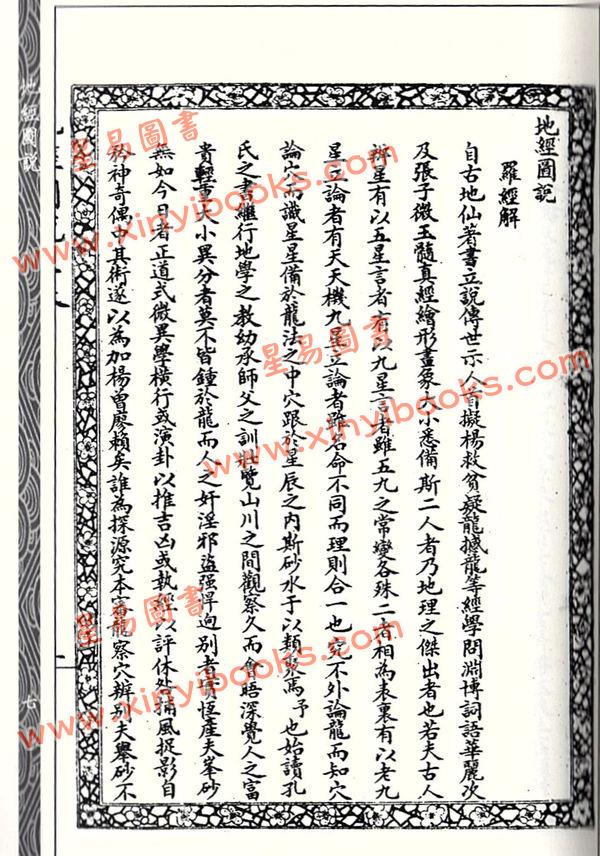 地經圖說
羅經解
自古地仙著書立說傳世示人首擬楊救貧疑龍撼龍等經學問淵博詞語華麗次
及張子微玉髓真經繪形畫象大小悉備斯二人者乃地理之傑出者也若夫古人
辨星有以五星言者有以九星言者雖五九之常變各殊二者相為表裏有以老九
星立論者有天天機九星立論者雖名命不同而理則合一也究不外論龍而知穴
論穴而識星星備於龍法之中穴跟於星辰之內斯砂水于以類聚焉予也始讀孔
氏之書繼行地學之教幼承師父之訓壯覽山川之間觀察久而會晤深覺人之富
貴輕重大小異分者莫不皆鍾於龍而人之奸淫邪盜强悍迥別者實怪產夫峯砂
無如今日者正道式微異學橫行或演卦以推吉凶或執經以評休咎捕風捉影自
矜神奇偶中其術遂以為加楊曾廖賴矣誰為探源究本審龍察穴辨別夫舉砂不
地經圖說
七
星易圖書
www.xinyibooks.com
星易圖書
www.xinyibooks.com
星易圖書
www.xinyibooks.com